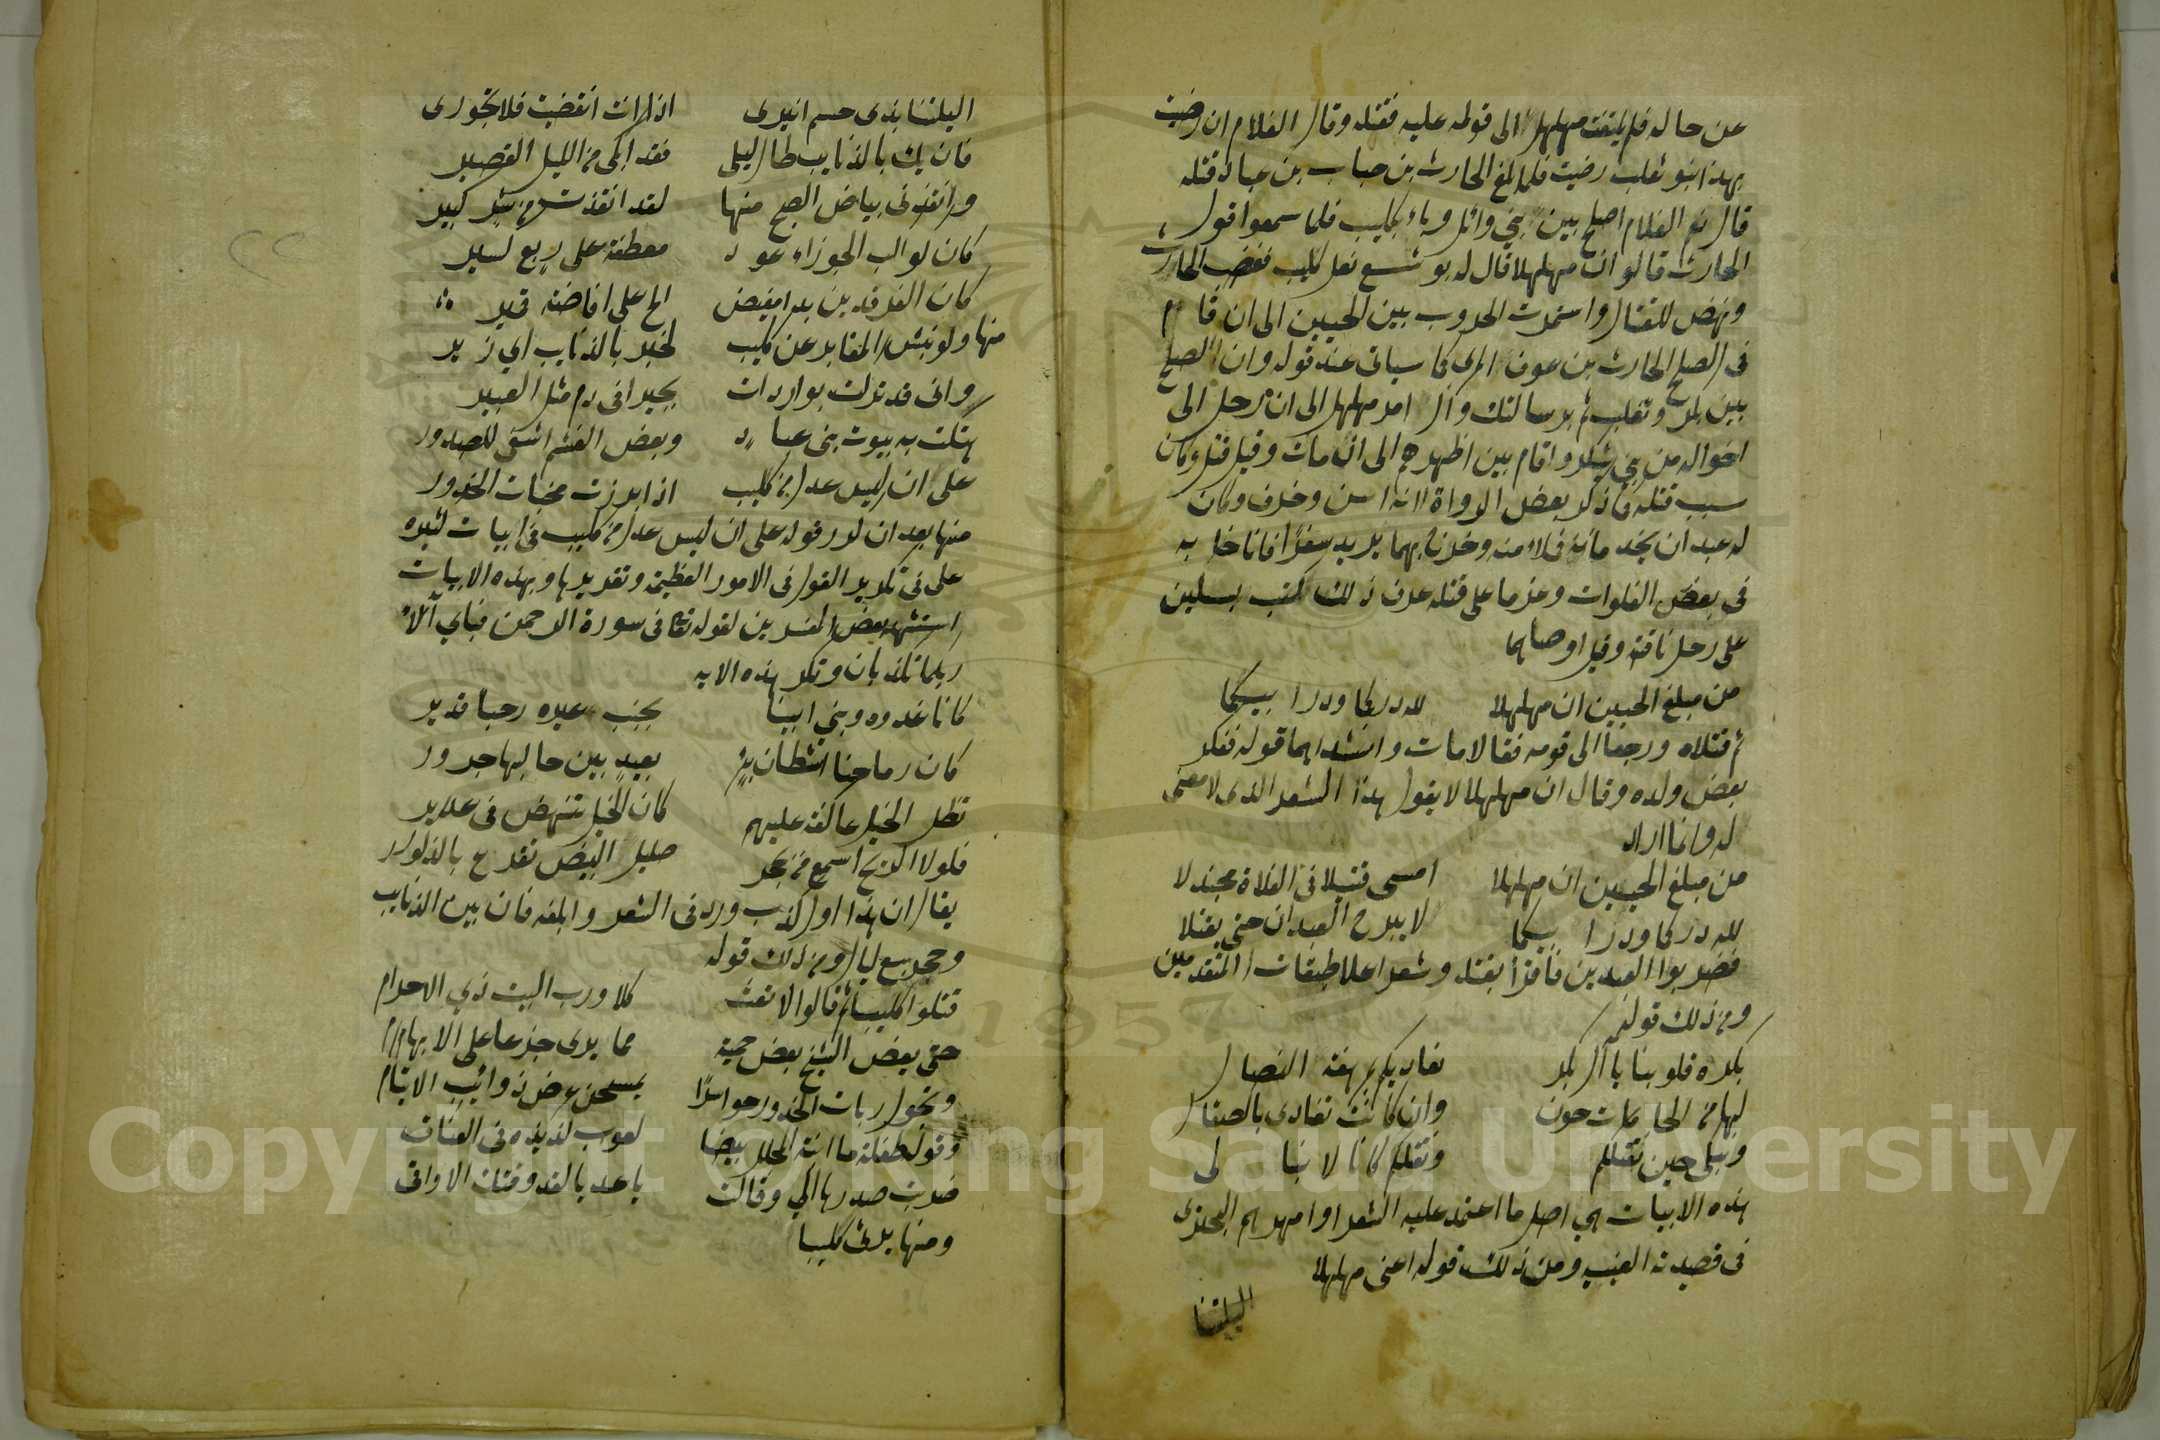 عن حاله فلم يلتفت مهلهل الى قوله عليه فقتله وقال الغلام ان رضيت
بهذا بنو تغلب رضيت فلما بلغ الحارث بن عباد قتله
قال نعم الغلام اصلح بين بني وائل وباء بكليب فلما سمعوا قول
الحارث قالوا ان مهلهلا قال له بو بشسع نعل كليب فغضب الحارث
ونهض للقتال واستمرت الحروب بين الحيين الى ان قام
في الصلح الحارث بن عوف المرى كما سياتى عند قوله وان الصلح
بين بكر وتغلب تم برسالتك وآل امر مهلهل الى ان رحل الى
اخواله من بني يشكر واقام بين اظهرهم الى ان مات وقيل قتل وكان
سبب قتله كما ذكر بعض الرواة انه اسن وخرف وكان
له عبدان يخدمانه فملا منه وخرج بهما يريد سفرا فاناخا به
فى بعض الفلوات وعزما على قتله عرف ذلك كتب بسكين
على رحل ناقته وقيل اوصاهما
من مبلغ الحيين ان مهلهلا لله دركما ودر ابيكما
ثم قتلاه ورجعا الى قومه فقالا مات وانشداهما قوله ففكر
بعض ولده وقال ان مهلهلا لا يقول هذا الشعر الذى لا معنى
له وانما اراد
من مبلغ الحيين ان مهلهلا امسى قتيلا فى الفلاة مجندلا
لله دركما ودر ابيكما لا يبرح العبدان حتى يقتلا
فضربوا العبدين فاقرا بقتله وشعرا علا طبقات المتقدمين
ومن ذلك قوله
بكره قلوبنا يا آل بكر نغاديكم بمرهفة النصال
لها من الهامات جون وان كانت تغادى بالصقال
ونبكى حين نقتلكم ونقتلكم كانا لا نبالى
هذه الابيات هي اصل ما اعتمد عليه الشعرا وامهرهم البحترى
فى قصيدته العينيه ومن ذلك قوله اعنى مهلهلا
اليلتنا
اليلتنا بذى حسم انيرى اذا انت انقضيت فلا تحورى
فان يك بالذنايب طال ليلى فقد ابكى من الليل القصير
وانقذنى بياض الصبح منها لقد انقذت من شر كبير
كان كواكب الجوزاء عود معطفة على ربع كسير
كان الفرقدين يدا مفيض الح على افاضته قدير
منها ولو نبش المقابر عن كليب لخبر بالذنايب اي زير
وانى قد تركت بواردات بجيرا فى دم مثل العبير
هتكت به بيوت بنى عباد وبعض الغشم اشفى للصدور
على ان ليس عدلا من كليب اذا برزت مخبات الخدور
منها بعد ان كرر قوله على ان ليس عدلا من كليب فى ابيات كثيره
على فى تكرير القول فى الامور العظيمة وتقريرها وبهذه الابيات
استشهد بعض المفسرين لقوله تعالى فى سورة الرحمن فباي آلاء
ربكما تكذبان وتكرر هذه الايه
كانا غدوه وبني ابينا بجنب عنيزه رحيا مدير
كان رماحنا اشطان بير بعيد بين جاليها جرور
تظل الخيل عاكفة عليهم كان الخيل تنهض فى غدير
فلولا الريح اسمع من بحجر صليل البيض تقرع بالذكور
يقال ان هذا اول كذب ورد فى الشعر وابلغه فان بين الذنايب
وحجر سبع ليال ومن ذلك قوله
قتلوا كليبا ثم قالوا لا تعث كلا ورب البيت ذي الاحرام
حتى يعض الشيخ بعض حمية مما يرى جزعا على الابهام
وتجول ربات الخدور حواسرا يمسحن عرض ذوائب الايتام
وقوله طفلة ما ابنة المحلل بيضا لعوب لذيذه فى العناق
ضربت صدرها الي وقالت يا عديا لقد وقتك الاواقى
ومنها يرثى كليبا
٢٢
Copyright © King Saud University
1957